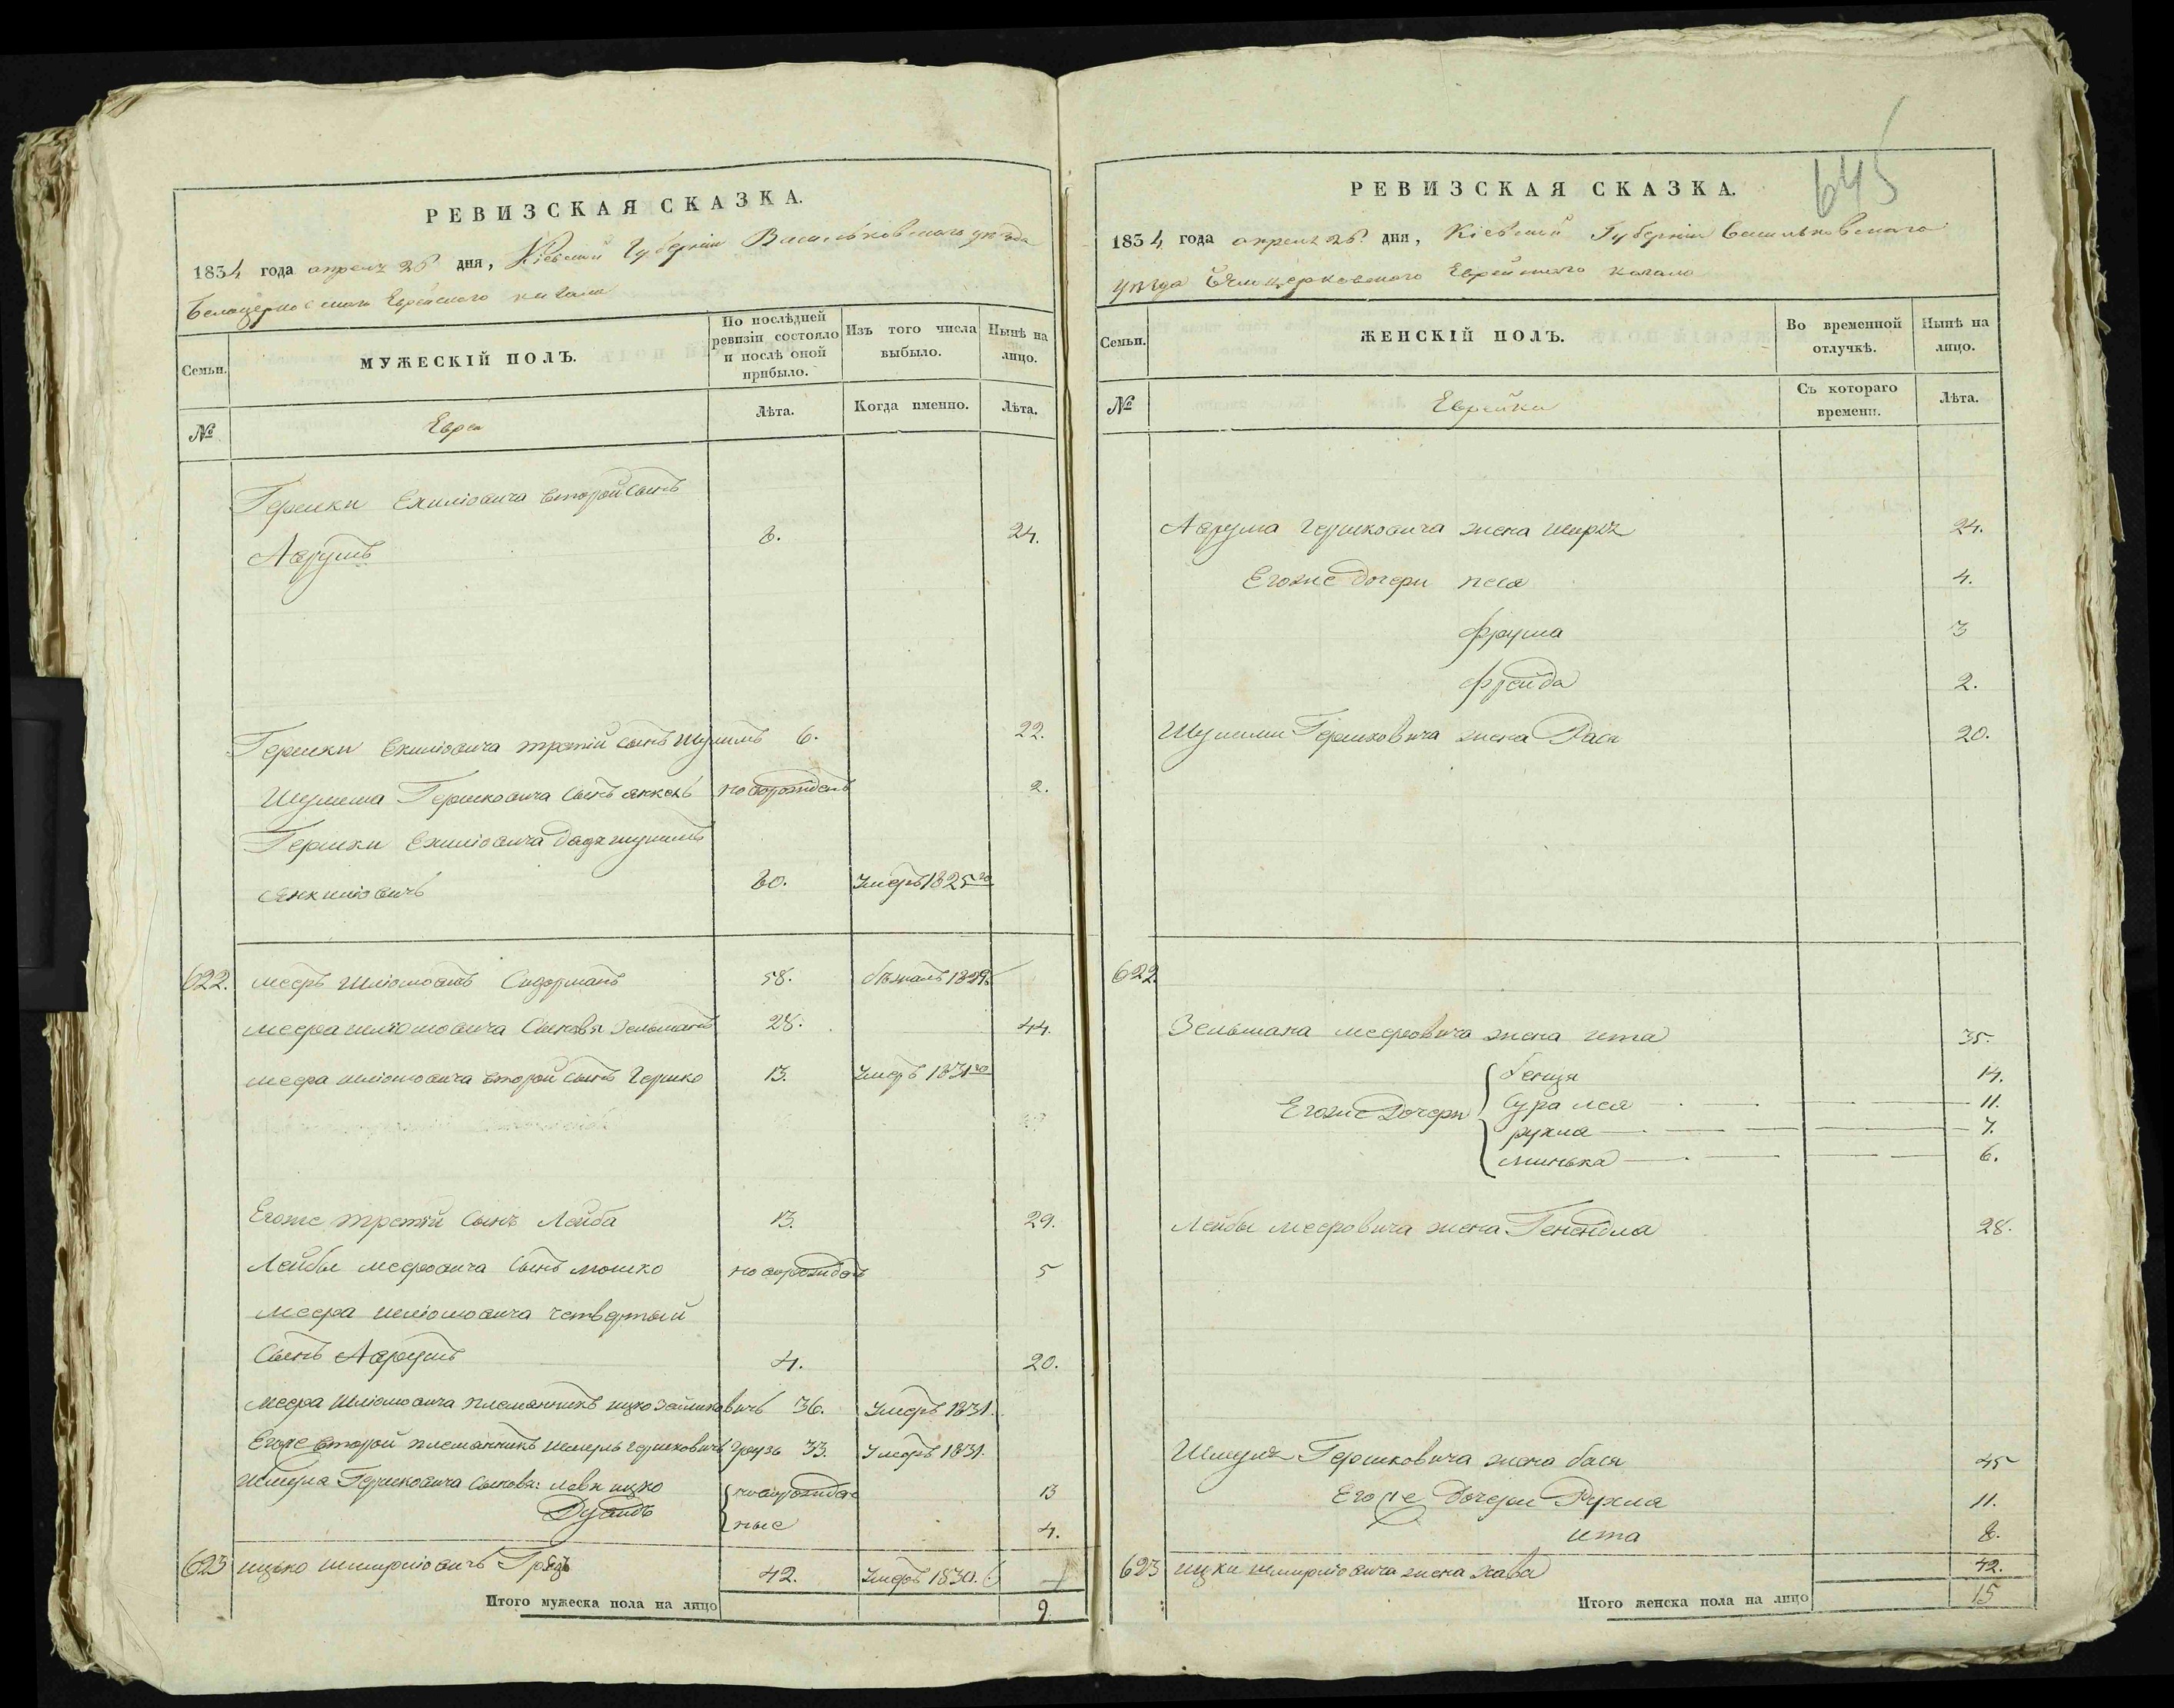 РЕВИЗСКАЯ СКАЗКА.
1834 года апреля 26 дня, Кіевской Губерніи Васильковскаго уѣзда
Белоцерковскаго Еврейского кагала
Семьи.
МУЖЕСКІЙ ПОЛЪ.
По послѣдней ревизіи состояло и послѣ оной прибыло.
Изъ того числа выбыло.
Нынѣ на лицо.
№
Евреи
Лѣта.
Когда именно.
Лѣта.
Гершки Ехиліовича второй сынъ
Аврумъ 8. 24.
Гершки Ехиліовича третій сынъ Шулимъ 6. 22.
Шулима Гершковича сынъ янкель новорожденъ 2.
Гершки Ехиліовича дядя шулимъ
Янкиліовичъ 60. Умеръ 1825го
622. мееръ Шліомовичъ 58. бѣжалъ 1829.
меера шліомовича Сыновья Зельманъ 28. 44.
меера шліомовича второй сынъ Гершко 13. Умеръ 1831го
Егоже третій Сынъ Лейба 13. 29.
Лейбы мееровича Сынъ мошко новорожденъ 5
меера шліомовича четвертый
Сынъ Аврумъ 4. 20.
меера Шліомовича племянникъ ицко 36. Умеръ 1831.
Егоже второй племянникъ шмуль гершковичъ 33. Умеръ 1831.
Шмуля Гершковича сыновья: ицко новорожден 13
Дувидъ ные 4.
623 ицько шмиріовичъ 42. Умеръ 1830.
Итого мужеска пола на лицо 9
645
РЕВИЗСКАЯ СКАЗКА.
1834 года апреля 26 дня, Кіевской Губерніи Васильковскаго
уѣзда Бѣлоцерковскаго Еврейскаго кагала
Семьи.
ЖЕНСКІЙ ПОЛЪ.
Во временной отлучкѣ.
Нынѣ на лицо.
№
Еврейки
Съ котораго времени.
Лѣта.
Аврума Гершковича жена 24.
Егоже дочери песя 4.
фрума 3
фрейда 2.
Шулима Гершковича жена Рася 20.
622.
Зельмана мееровича жена ита 35.
Егоже Дочери бенця 14.
Сура лея 11.
рухля 7.
минька 6.
Лейбы мееровича жена Генендла 28.
Шмуля Гершковича жена бася 45
Егоже Дочери Рухля 11.
ита 8.
623 ицки шмиріовича жена хава 42.
Итого женска пола на лицо 15